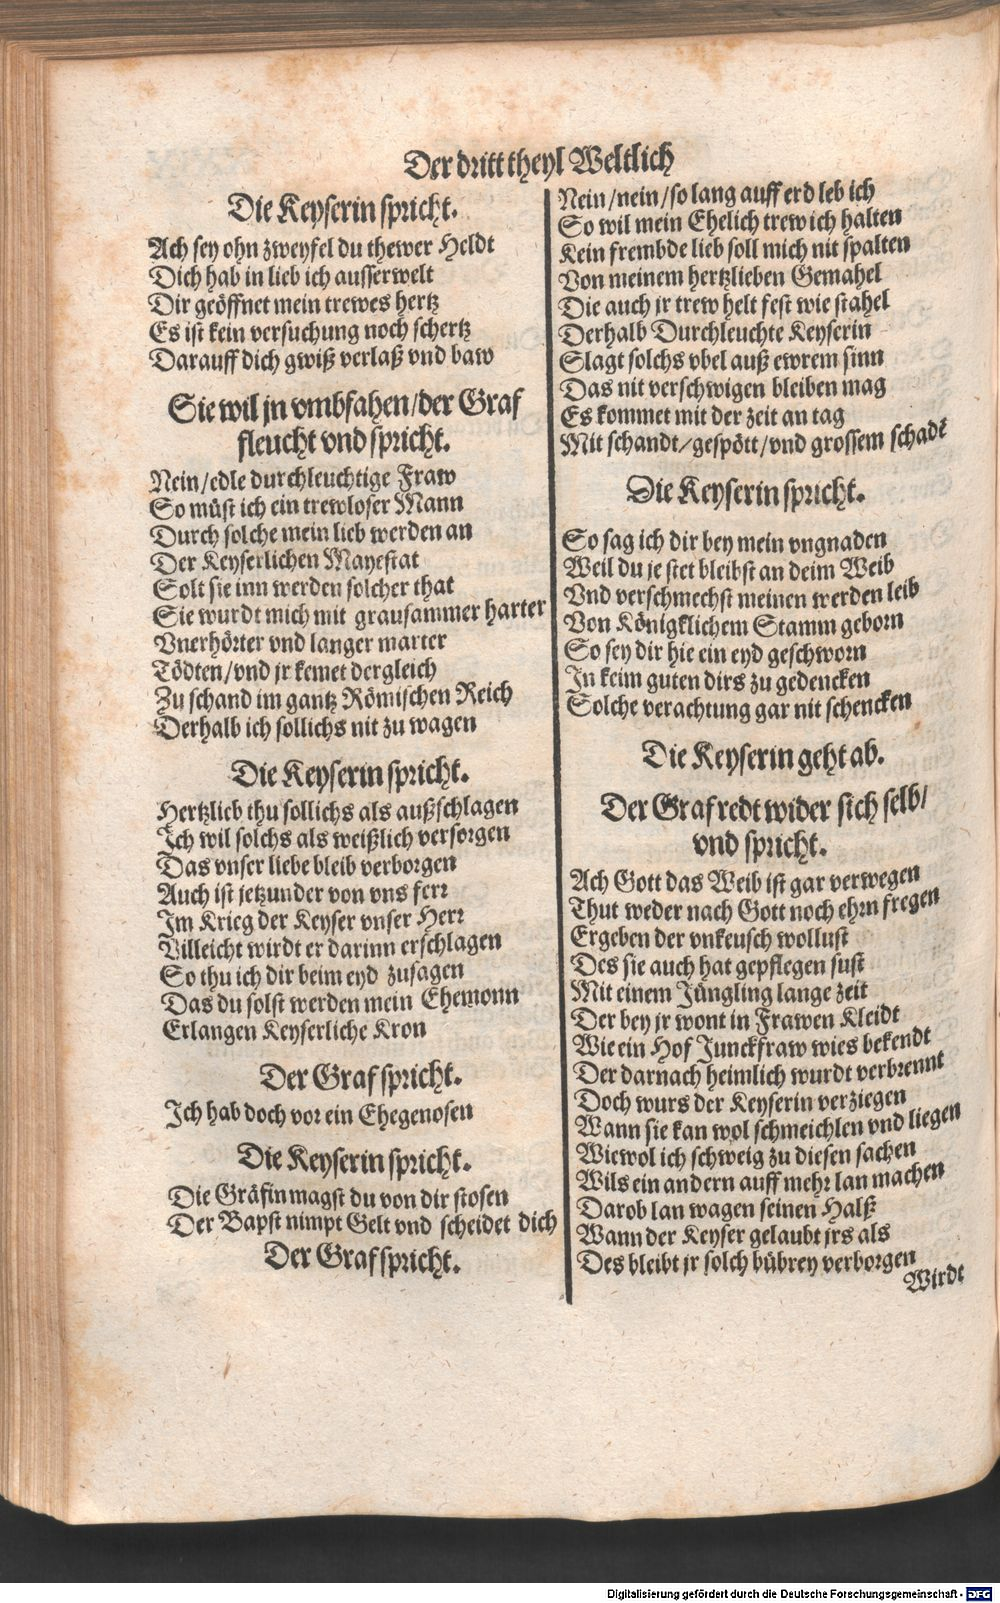 Der dritt theyl Weltlich
Die Keyserin spricht.
Ach sey ohn zweyfel du thewer Heldt
Dich hab in lieb ich ausserwelt
Dir geöffnet mein trewes hertz
Es ist kein versuchung noch schertz
Darauff dich gwiß verlaß vnd baw
Sie wil jn vmbfahen/der Graf
fleucht vnd spricht.
Nein/edle durchleuchtige Fraw
So müst ich ein trewloser Mann
Durch solche mein lieb werden an
Der Keyserlichen Mayestat
Solt sie inn werden solcher that
Sie wurdt mich mit grausammer harter
Vnerhörter vnd langer marter
Tödten/vnd jr kemet dergleich
Zu schand im gantz Römischen Reich
Derhalb ich sollichs nit zu wagen
Die Keyserin spricht.
Hertzlieb thu sollichs als außschlagen
Ich wil solchs als weißlich versorgen
Das vnser liebe bleib verborgen
Auch ist jetzunder von vns ferr
Im Krieg der Keyser vnser Herr
Villeicht wirdt er darinn erschlagen
So thu ich dir beim eyd zusagen
Das du solst werden mein Ehemonn
Erlangen Keyserliche Kron
Der Graf spricht.
Ich hab doch vor ein Ehegenosen
Die Keyserin spricht.
Die Gräfin magst du von dir stosen
Der Bapst nimpt Gelt vnd scheidet dich
Der Graf spricht.
Nein/nein/so lang auff erd leb ich
So wil mein Ehelich trew ich halten
Kein frembde lieb soll mich nit spalten
Von meinem hertzlieben Gemahel
Die auch jr trew helt fest wie stahel
Derhalb Durchleuchte Keyserin
Slagt solchs vbel auß ewrem sinn
Das nit verschwigen bleiben mag
Es kommet mit der zeit an tag
Mit schandt/gespött/vnd grossem schadē
Die Keyserin spricht.
So sag ich dir bey mein vngnaden
Weil du je stet bleibst an deim Weib
Vnd verschmechst meinen werden leib
Von Königklichem Stamm geborn
So sey dir hie ein eyd geschworn
In keim guten dirs zu gedencken
Solche verachtung gar nit schencken
Die Keyserin geht ab.
Der Graf redt wider sich selb/
vnd spricht.
Ach Gott das Weib ist gar verwegen
Thut weder nach Gott noch ehrn fregen
Ergeben der vnkeusch wollust
Des sie auch hat gepflegen sust
Mit einem Jüngling lange zeit
Der bey jr wont in Frawen Kleidt
Wie ein Hof Junckfraw wies bekendt
Der darnach heimlich wurdt verbrennt
Doch wurs der Keyserin verziegen
Wann sie kan wol schmeichlen vnd liegen
Wiewol ich schweig zu diesen sachen
Wils ein andern auff mehr lan machen
Darob lan wagen seinen Halß
Wann der Keyser gelaubt jrs als
Des bleibt jr solch bübrey verborgen
Wirdt
Digitalisierung gefördert durch die Deutsche Forschungsgemeinschaft - DFG